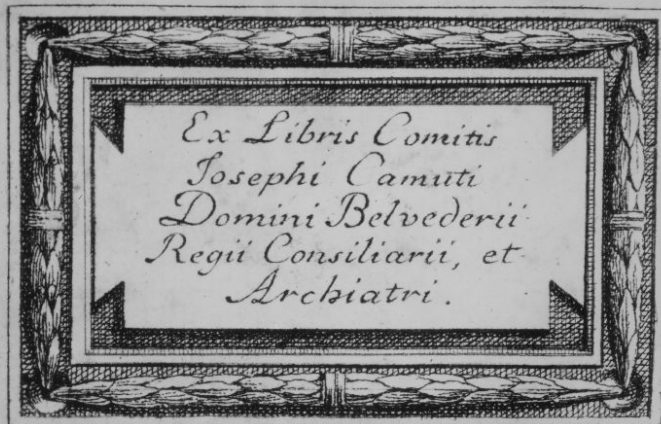 Ex Libris Comitis
Josephi Camuti
Domini Belvederii
Regii Consiliarii, et
Archiatri.